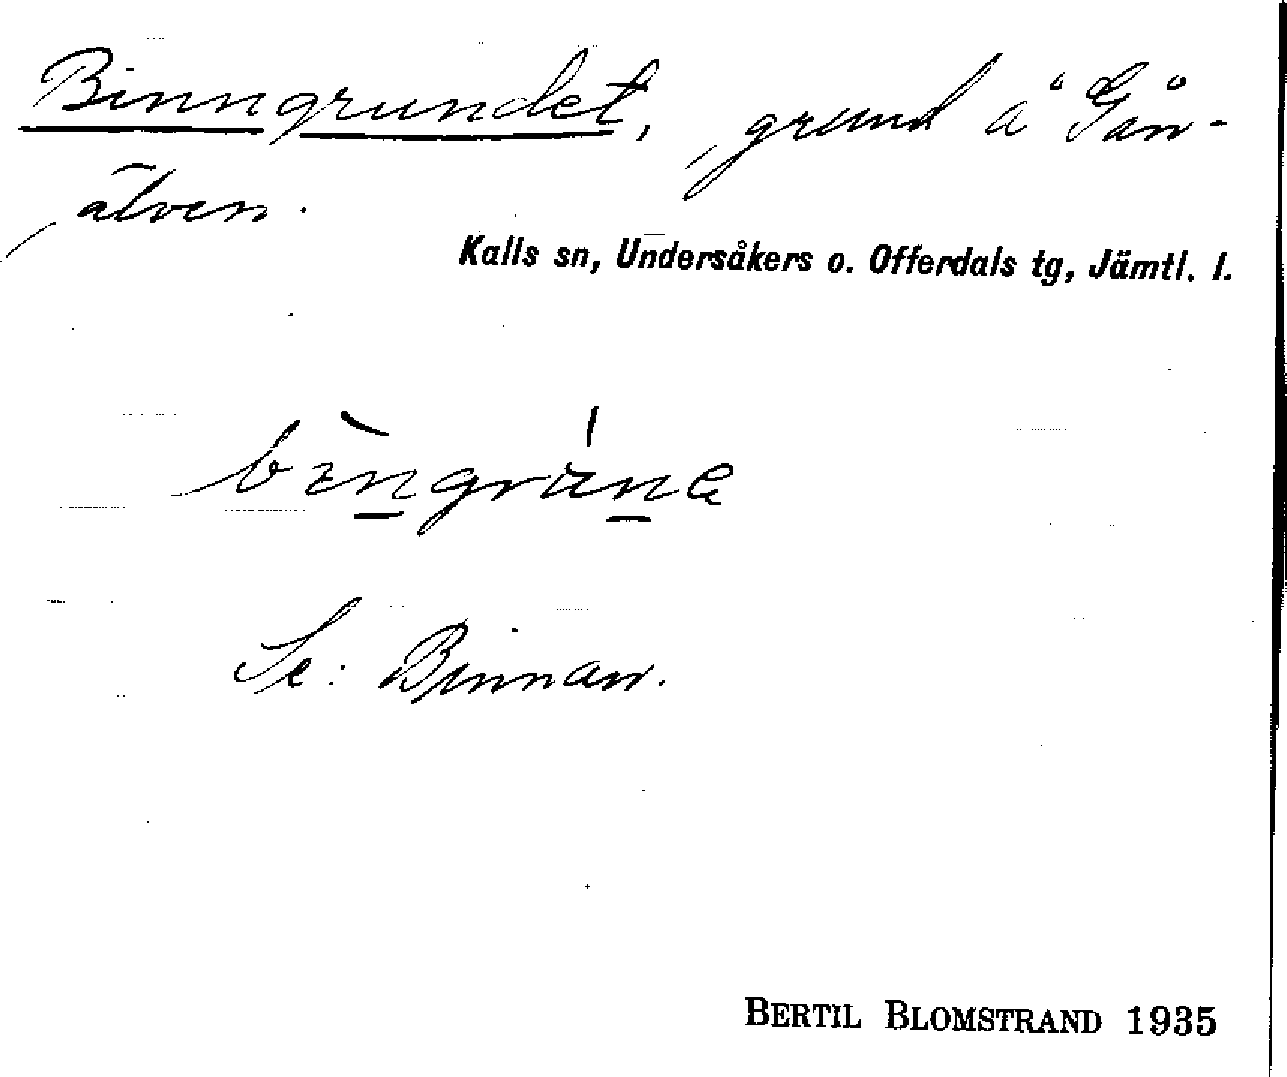 Binngrundet, grund å Gån-
älven.
Kalls sn, Undersåkers o. Offerdals tg, Jämtl. l.
Se: Binnan.
BERTIL BLOMSTRAND 1935